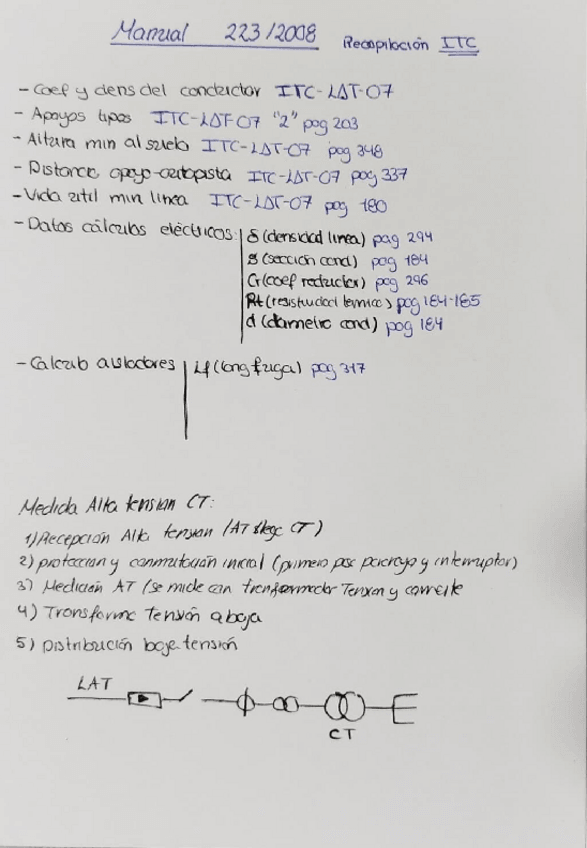 Manual 223/2008 Recopilación ITC
- Coef y dens del conductor ITC-LAT-07
- Apoyos tipos ITC-LAT-07 "2" pag 203
- Altura min al suelo ITC-LAT-07 pag 348
- Distancia apoyo-autopista ITC-LAT-07 pag 337
- Vida util min linea ITC-LAT-07 pag 180
- Datos cálculos eléctricos: δ (densidad linea) pag 294
s (sección cond) pag 184
Cr (coef reductor) pag 296
Rt (resistividad termica) pag 184-185
d (diametro cond) pag 184
- Calculo aisladores Lf (long fuga) pag 317
Medida Alta tension CT:
1) Recepción Alta tension (AT llega CT)
2) proteccion y conmutación inicial (primero pox pararrayo y interruptor)
3) Medición AT (se mide con transformador Tension y corriente
4) Transforma tensión a baja
5) Distribución baja tensión
LAT
CT